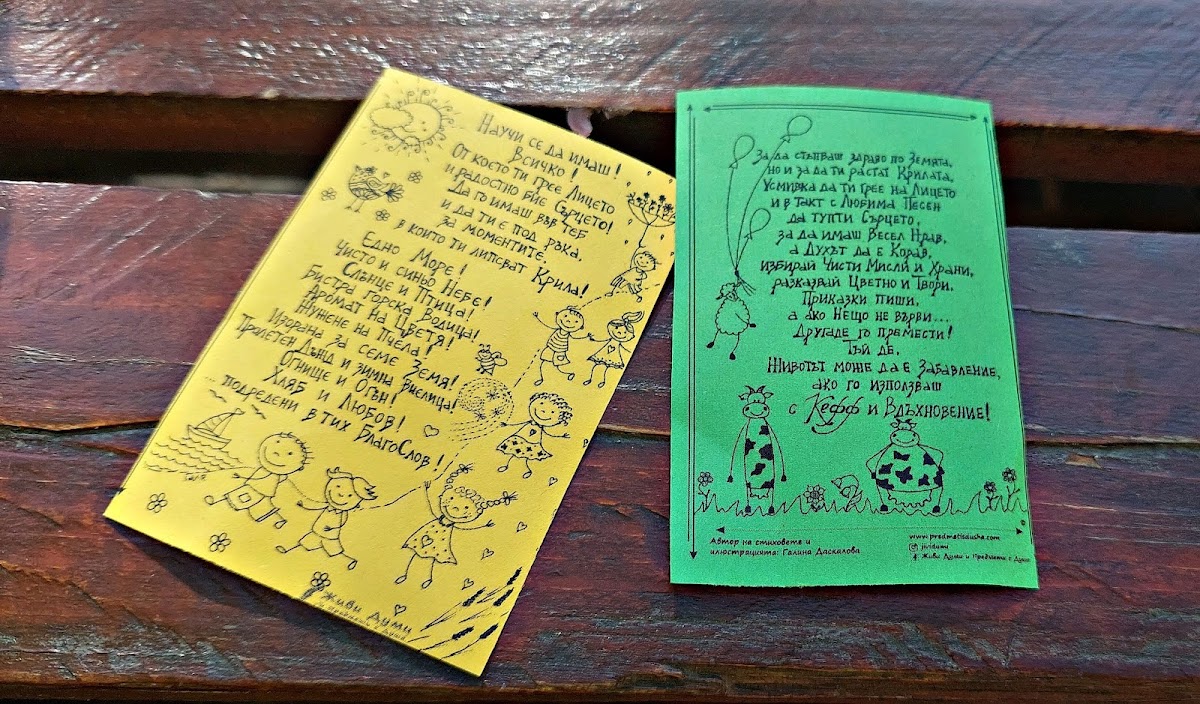 Научи се да имаш!
Всичко!
От което ти грее Лицето
и радостно бие Сърцето!
Да го имаш във теб
и да ти е под ръка,
за моментите,
в които ти липсват Крила!
Едно Море!
Чисто и синьо Небе!
Слънце и Птица!
Бистра горска Водица!
Аромат на Цветя!
Жужене на Пчела!
Изорана за семе Земя!
Пролетен Дъжд и зимна Виелица!
Огнище и Огън!
Хляб и Любов!
... подредени в тих БлагоСлов!
Живи Думи
и Предмети с Душа
За да стъпваш здраво по Земята,
но и за да ти растат Крилата,
Усмивка да ти грее на Лицето
и в такт с Любима Песен
да тупти Сърцето,
за да имаш Весел Нрав,
а Духът да е Корав,
избирай Чисти Мисли и Храни,
разказвай Цветно и Твори,
Приказки пиши,
а ако Нещо не върви...
Другаде го премести!
Тъй де,
Животът може да е Забавление,
ако го използваш
с Кефф и Вдъхновение!
Автор на стиховете и
илюстрацията: Галина Даскалова
www.predmetisdusha.com
jividumi
Живи Думи и Предмети с Душа